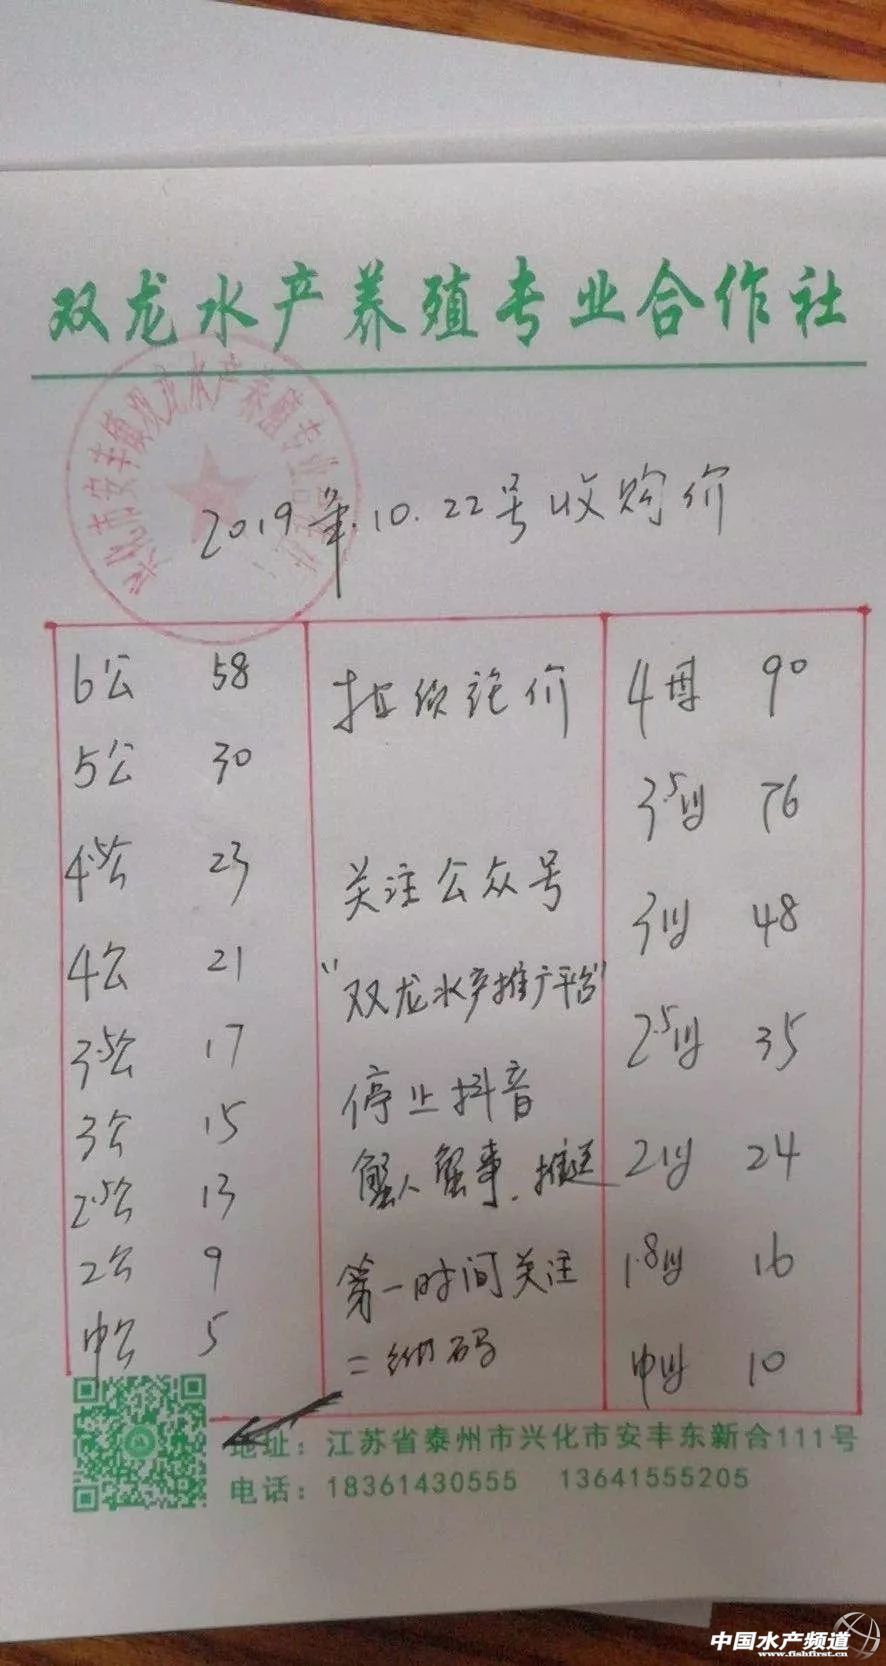 双龙水产养殖专业合作社
兴化市安丰镇双龙水产养殖专业合作社
2019年.10.22号收购价
6公 58
5公 30
4.5公 23
4公 21
3.5公 17
3公 15
2.5公 13
2公 9
中公 5
拒绝
价
关注公众号
“双龙水产推广平台”
停止抖音
蟹人蟹事.推送
第一时间关注
二维码
4母 90
3.5母 76
3母 48
2.5母 35
2母 24
1.8母 16
中母 10
地址：江苏省泰州市兴化市安丰东新合111号
电话：18361430555 13641555205
中国水产频道
www.fishfirst.cn